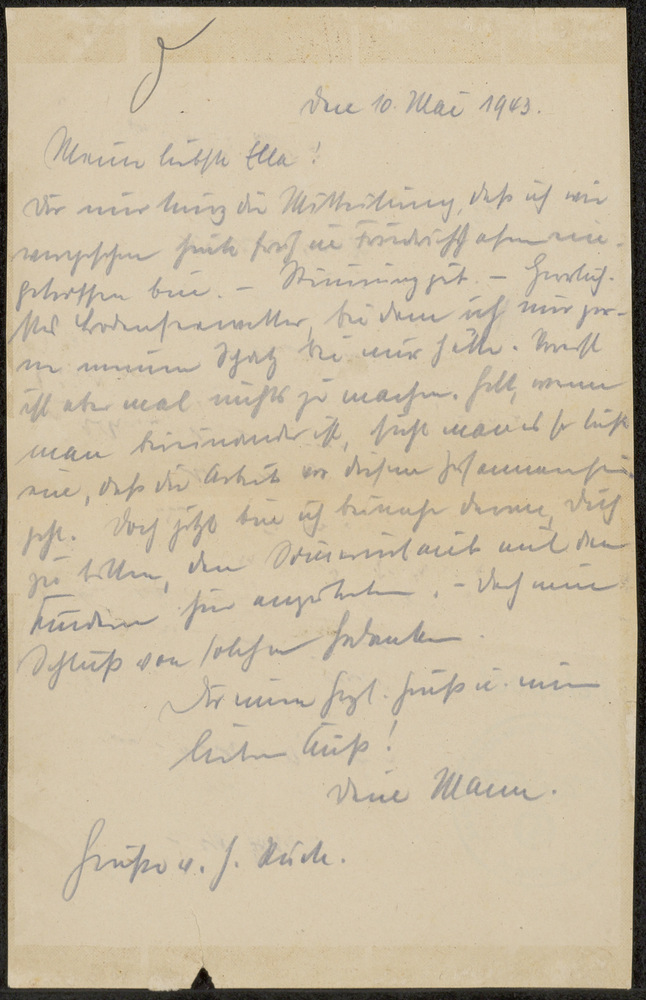 Den 10. Mai 1943.
Meine liebste Ella!
Dir nur kurz die Mitteilung, daß ich wie
vorgesehen heute früh in Friedrichshafen ein-
getroffen bin. – Stimmung gut. – Herrlich-
stes Bodenseewetter, bei dem ich nur ger-
ne meinen Schatz bei mir hätte. Sonst
ist aber mal nichts zu machen. Gell, wenn
man beieinander ist, sieht man es so leicht
ein, daß die Arbeit vor diesem Zusammensein
geht. Doch jetzt bin ich beinahe daran, Dich
zu bitten, den Sommerurlaub mit den
Kindern hier anzutreten. – Doch nun
Schluß von solchen Gedanken.
Dir einen herzl. Gruß u. einen
lieben Kuß!
Dein Mann.
Grüße v. H.